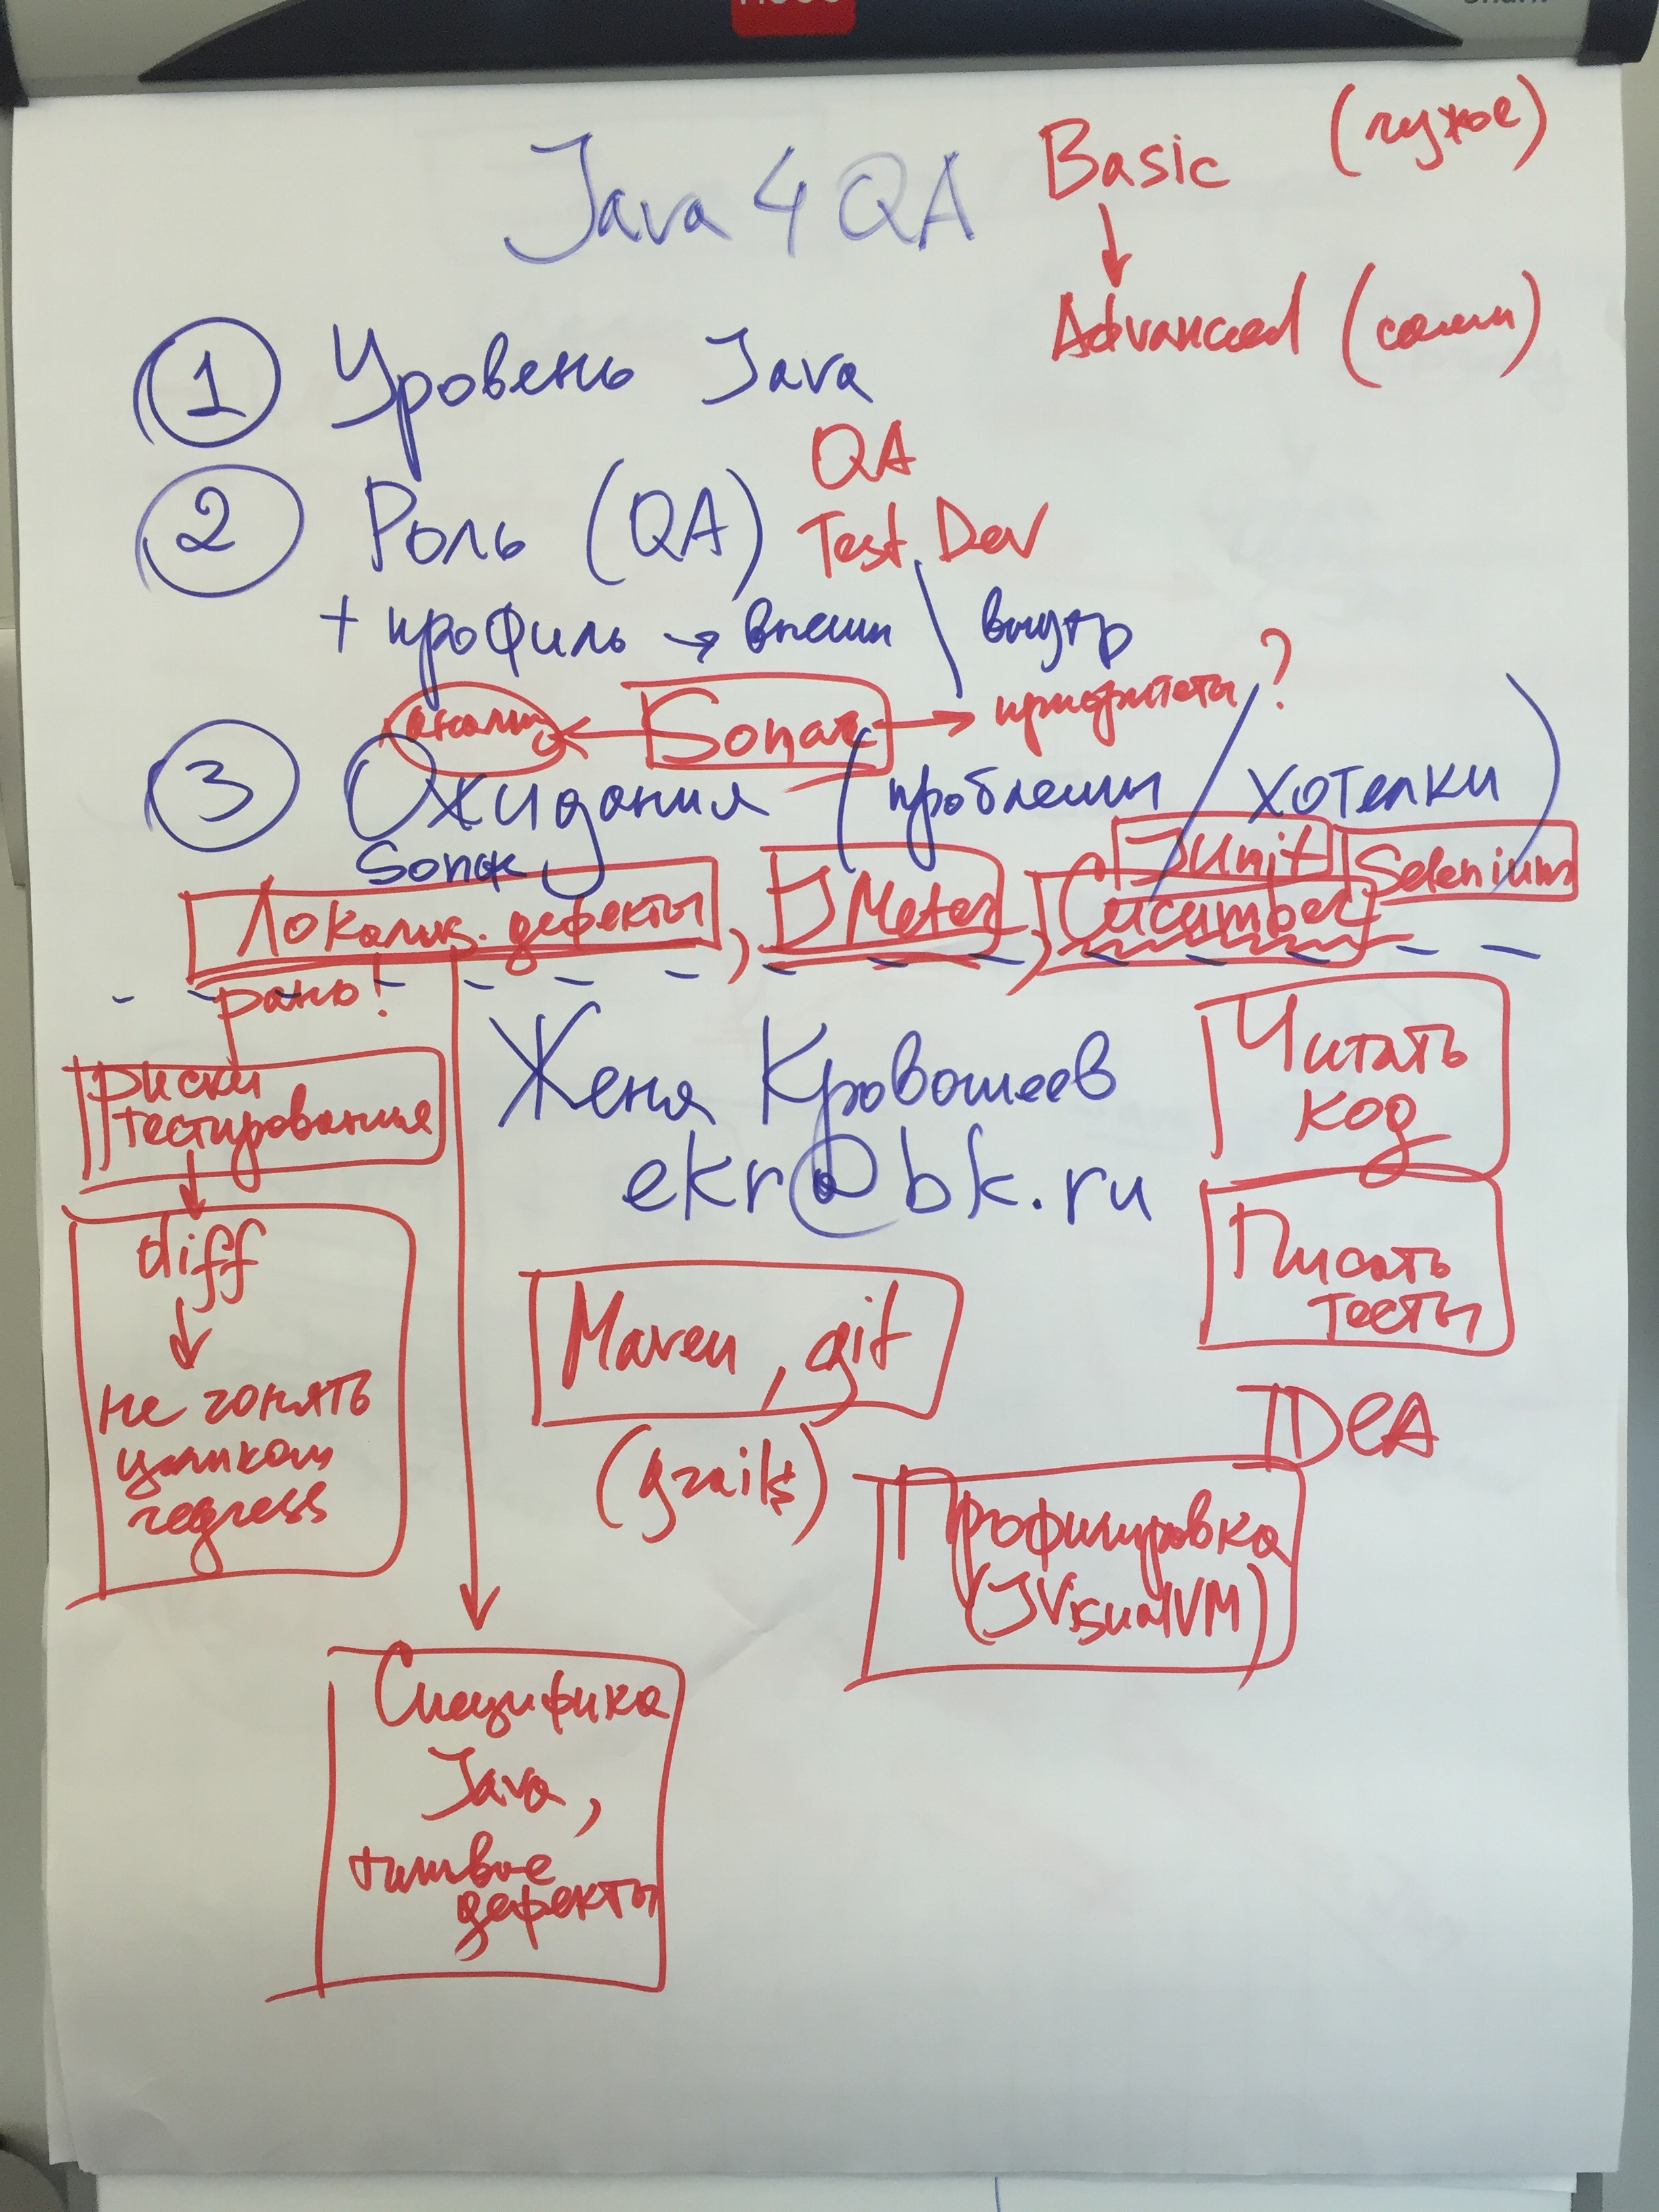 Java 4 QA
Basic (чужое)
Advanced (сами)
1 Уровень Java
2 Роль (QA)
QA
Test Dev
+ профиль → внешн \ внутр
анализ ← Sonar → приоритеты ?
3 Ожидания (проблемы / хотелки)
Sonar
Локализ. дефекты, JMeter, Cucumber
JUnit
Selenium
рано!
риски
тестирования
diff
не гонять
целиком
regress
Женя Кровошеев
ekr@bk.ru
Читать
код
Писать
тесты
Maven, git
(grails)
IDEA
Профилировка
(JVisualVM)
Специфика
Java,
типовые
дефекты